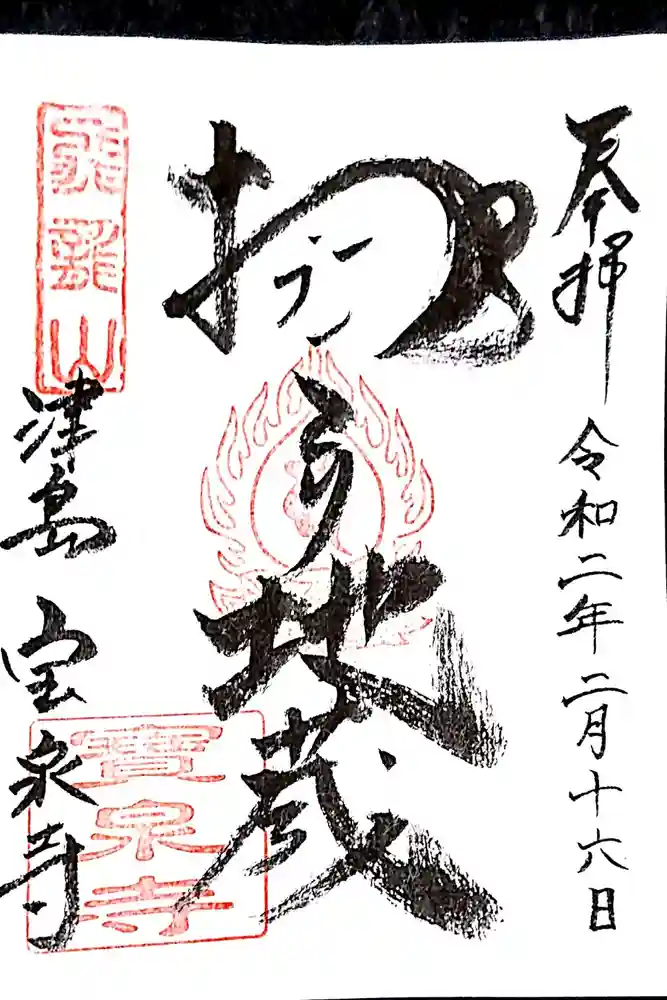 奉拝
令和二年二月十六日
地蔵
津島 宝泉寺
寶泉寺